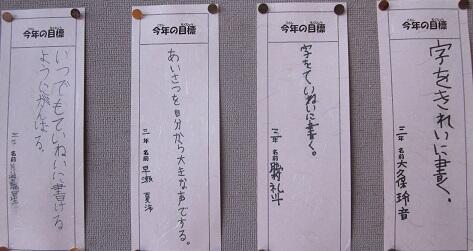 今年の目標
字をきれいに書く。
三年 名前 大久保 玲音
今年の目標
字をていねいに書く。
三年 名前 礼斗
今年の目標
あいさつを自分から大きな声でする。
三年 名前 早瀬
今年の目標
いつでもていねいに書ける
ようにがんばる。
三年 名前